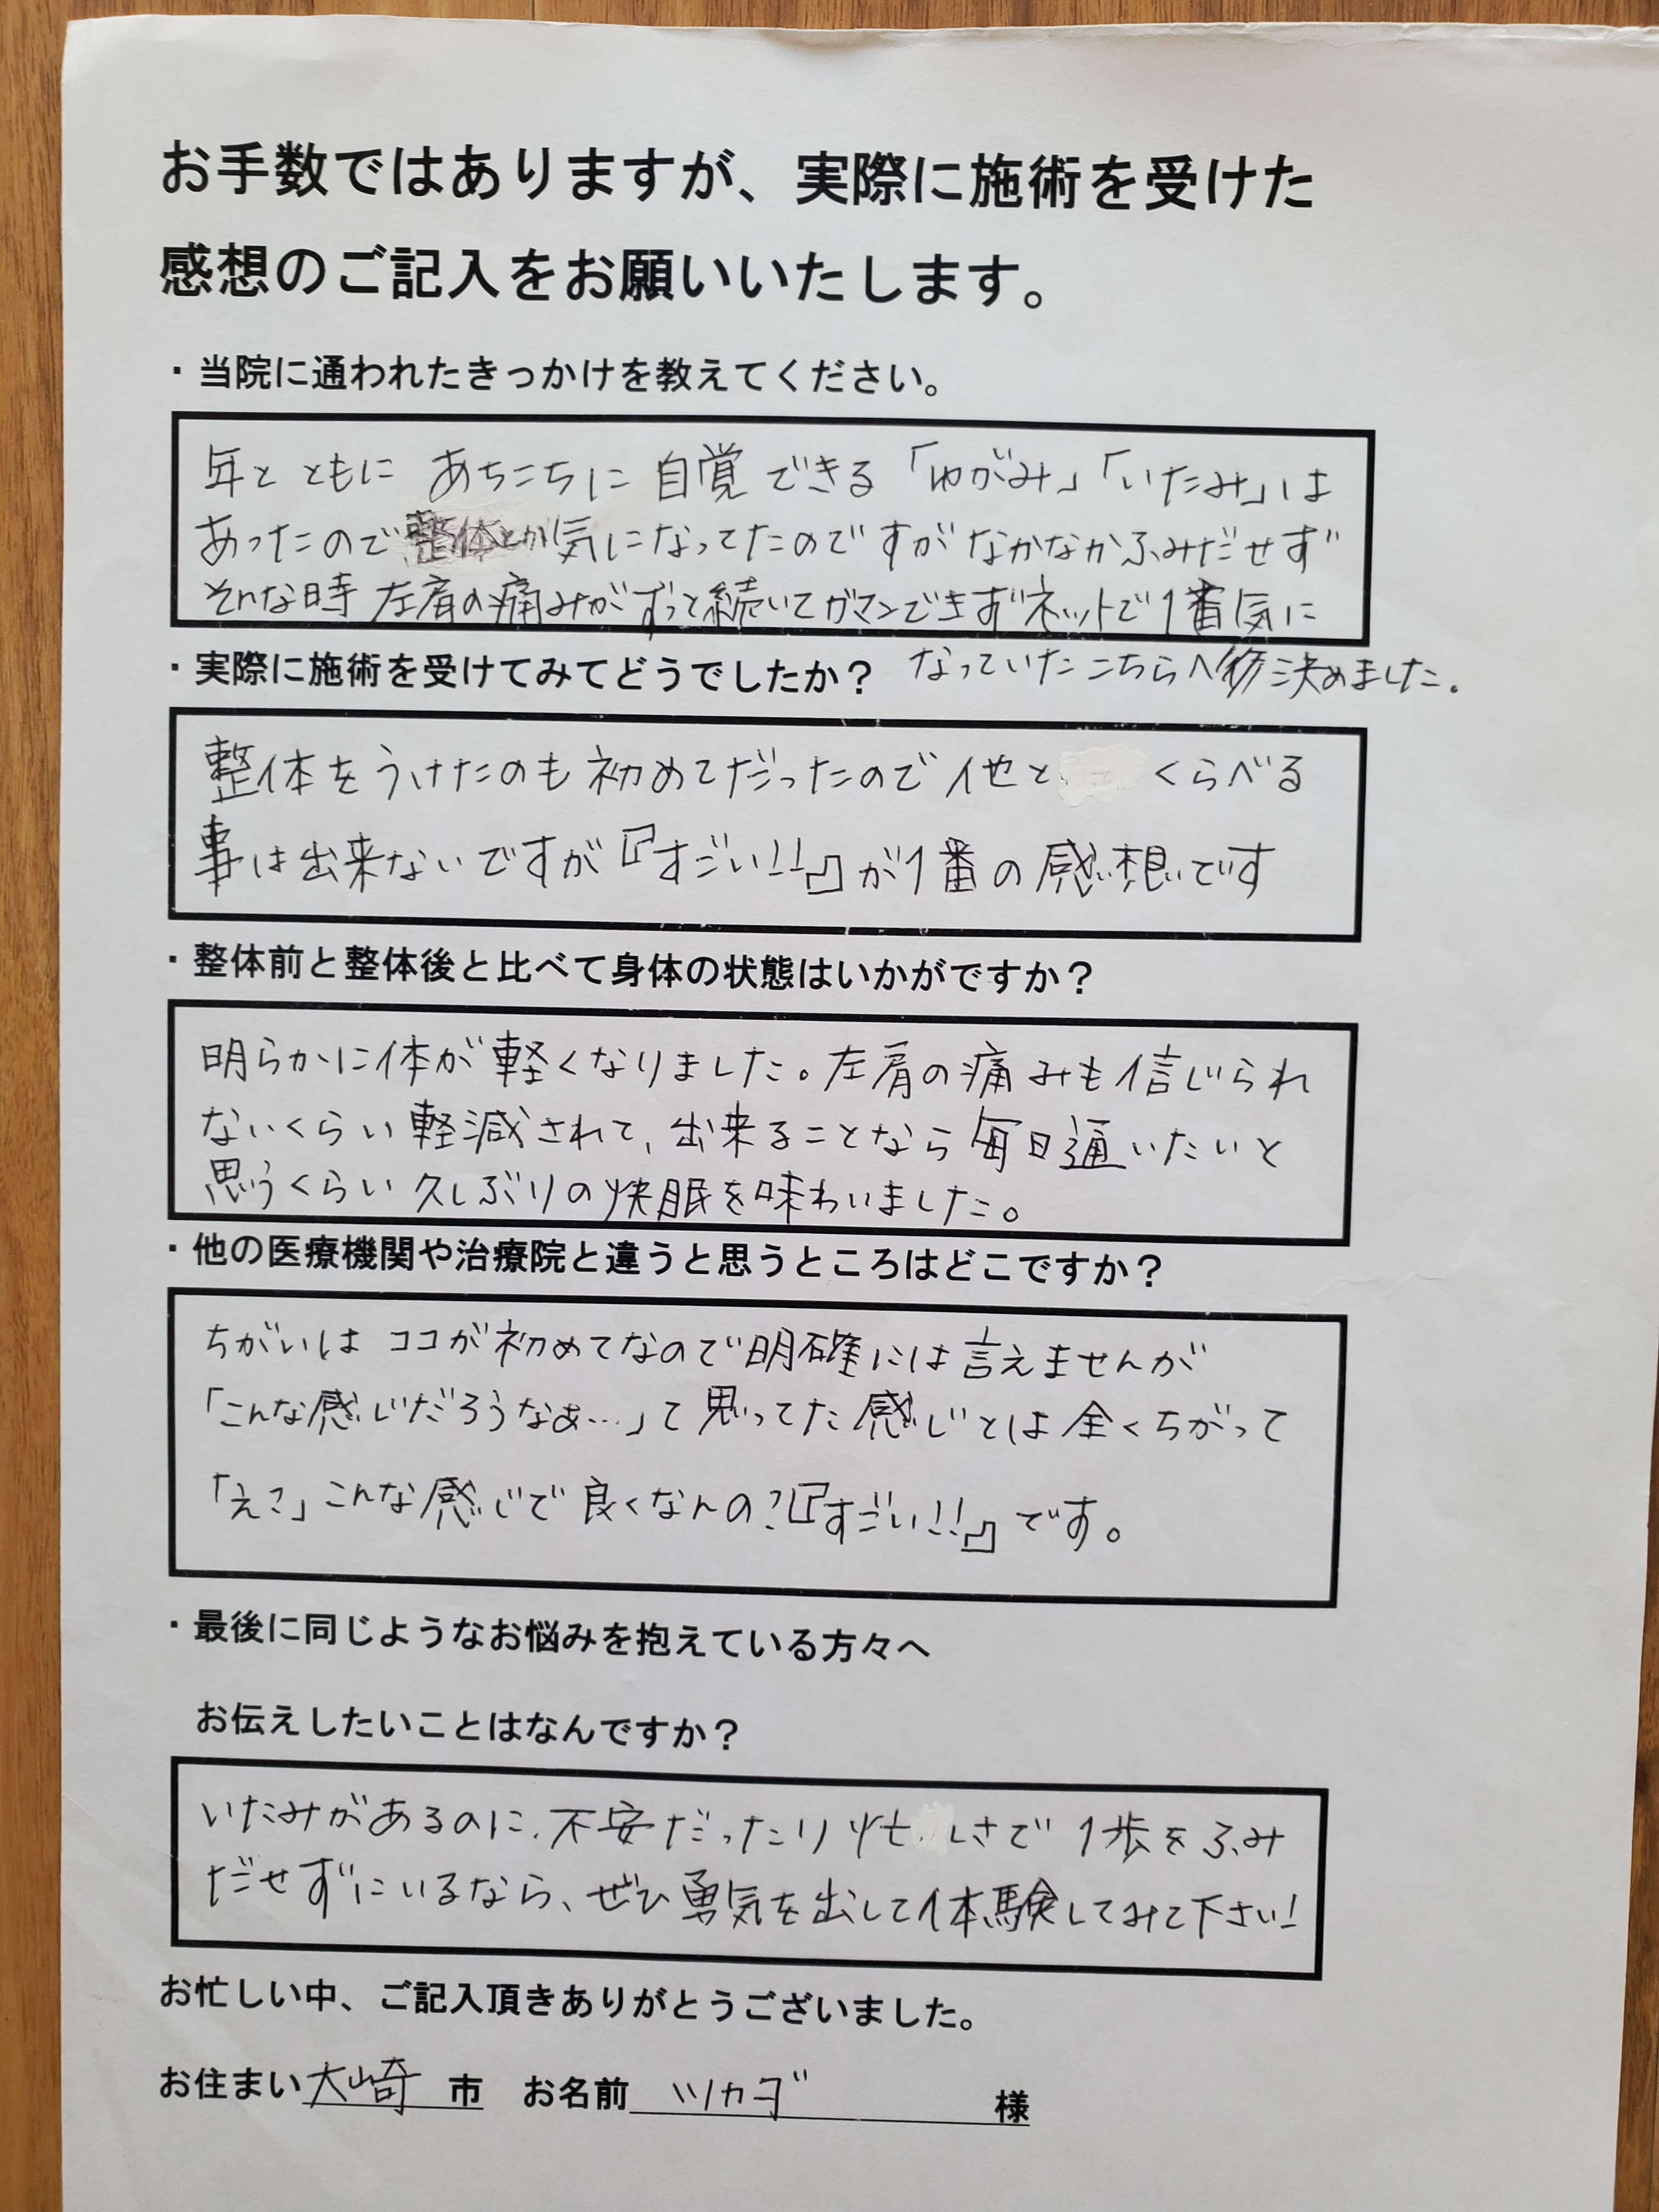 お手数ではありますが、実際に施術を受けた
感想のご記入をお願いいたします。
・当院に通われたきっかけを教えてください。
年とともに あちこちに 自覚できる「ゆがみ」「いたみ」は
あったので整体とか気になってたのですがなかなかふみだせず
そんな時 左肩の痛みがずっと続いてガマンできずネットで1番気に
なっていたこちらへ 決めました。
・実際に施術を受けてみてどうでしたか？
整体をうけたのも初めてだったので他と くらべる
事は出来ないですが『すごい!!』が1番の感想です
・整体前と整体後と比べて身体の状態はいかがですか？
明らかに体が軽くなりました。左肩の痛みも信じられ
ないくらい軽減されて、出来ることなら毎日通いたいと
思うくらい久しぶりの快眠を味わいました。
・他の医療機関や治療院と違うと思うところはどこですか？
ちがいは ココが初めてなので明確には言えませんが
「こんな感じだろうなぁ…」て思ってた感じとは全くちがって
「えっ」こんな感じで良くなんの?『すごい!!』です。
・最後に同じようなお悩みを抱えている方々へ
お伝えしたいことはなんですか？
いたみがあるのに、不安だったり忙しさで1歩をふみ
だせずにいるなら、ぜひ勇気を出して体験してみて下さい!
お忙しい中、ご記入頂きありがとうございました。
お住まい 大崎 市 お名前 ツカゴ 様